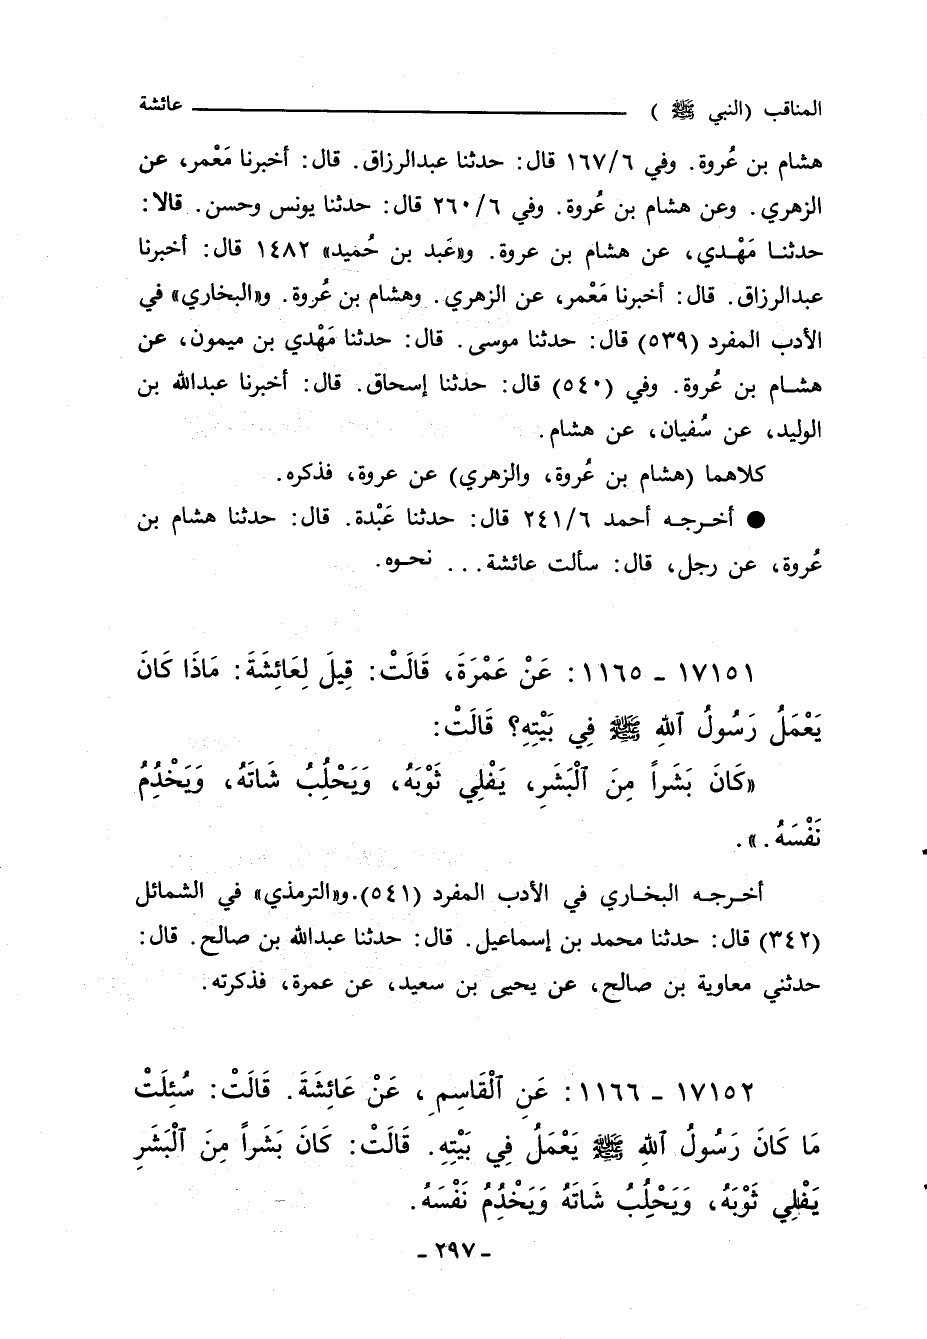 المناقب (النبي ﷺ) عائشة
هشام بن عُروة. وفي ٦/١٦٧ قال: حدثنا عبدالرزاق. قال: أخبرنا مَعْمر، عن
الزهري. وعن هشام بن عُروة. وفي ٦/٢٦٠ قال: حدثنا يونس وحسن. قالا:
حدثنا مَهْدي، عن هشام بن عروة. و«عَبد بن حُميد» ١٤٨٢ قال: أخبرنا
عبدالرزاق. قال: أخبرنا مَعْمر، عن الزهري. وهشام بن عُروة. و«البخاري» في
الأدب المفرد (٥٣٩) قال: حدثنا موسى. قال: حدثنا مَهْدي بن ميمون، عن
هشام بن عُروة. وفي (٥٤٠) قال: حدثنا إسحاق. قال: أخبرنا عبدالله بن
الوليد، عن سُفيان، عن هشام.
كلاهما (هشام بن عُروة، والزهري) عن عروة، فذكره.
● أخرجه أحمد ٦/٢٤١ قال: حدثنا عَبْدة. قال: حدثنا هشام بن
عُروة، عن رجل، قال: سألت عائشة... نحوه.
١٧١٥١ - ١١٦٥: عَنْ عَمْرَةَ، قَالَتْ: قِيلَ لِعَائِشَةَ: مَاذَا كَانَ
يَعْمَلُ رَسُولُ ٱللهِ ﷺ فِي بَيْتِهِ؟ قَالَتْ:
«كَانَ بَشَراً مِنَ ٱلْبَشَرِ، يَفْلِي ثَوْبَهُ، وَيَحْلُبُ شَاتَهُ، وَيَخْدُمُ
نَفْسَهُ.».
أخرجه البخاري في الأدب المفرد (٥٤١). و«الترمذي» في الشمائل
(٣٤٢) قال: حدثنا محمد بن إسماعيل. قال: حدثنا عبدالله بن صالح. قال:
حدثني معاوية بن صالح، عن يحيى بن سعيد، عن عمرة، فذكرته.
١٧١٥٢ - ١١٦٦: عَنِ ٱلْقَاسِمِ، عَنْ عَائِشَةَ. قَالَتْ: سُئِلَتْ
مَا كَانَ رَسُولُ ٱللهِ ﷺ يَعْمَلُ فِي بَيْتِهِ. قَالَتْ: كَانَ بَشَراً مِنَ ٱلْبَشَرِ
يَفْلِي ثَوْبَهُ، وَيَحْلِبُ شَاتَهُ وَيَخْدُمُ نَفْسَهُ.
- ٢٩٧ -